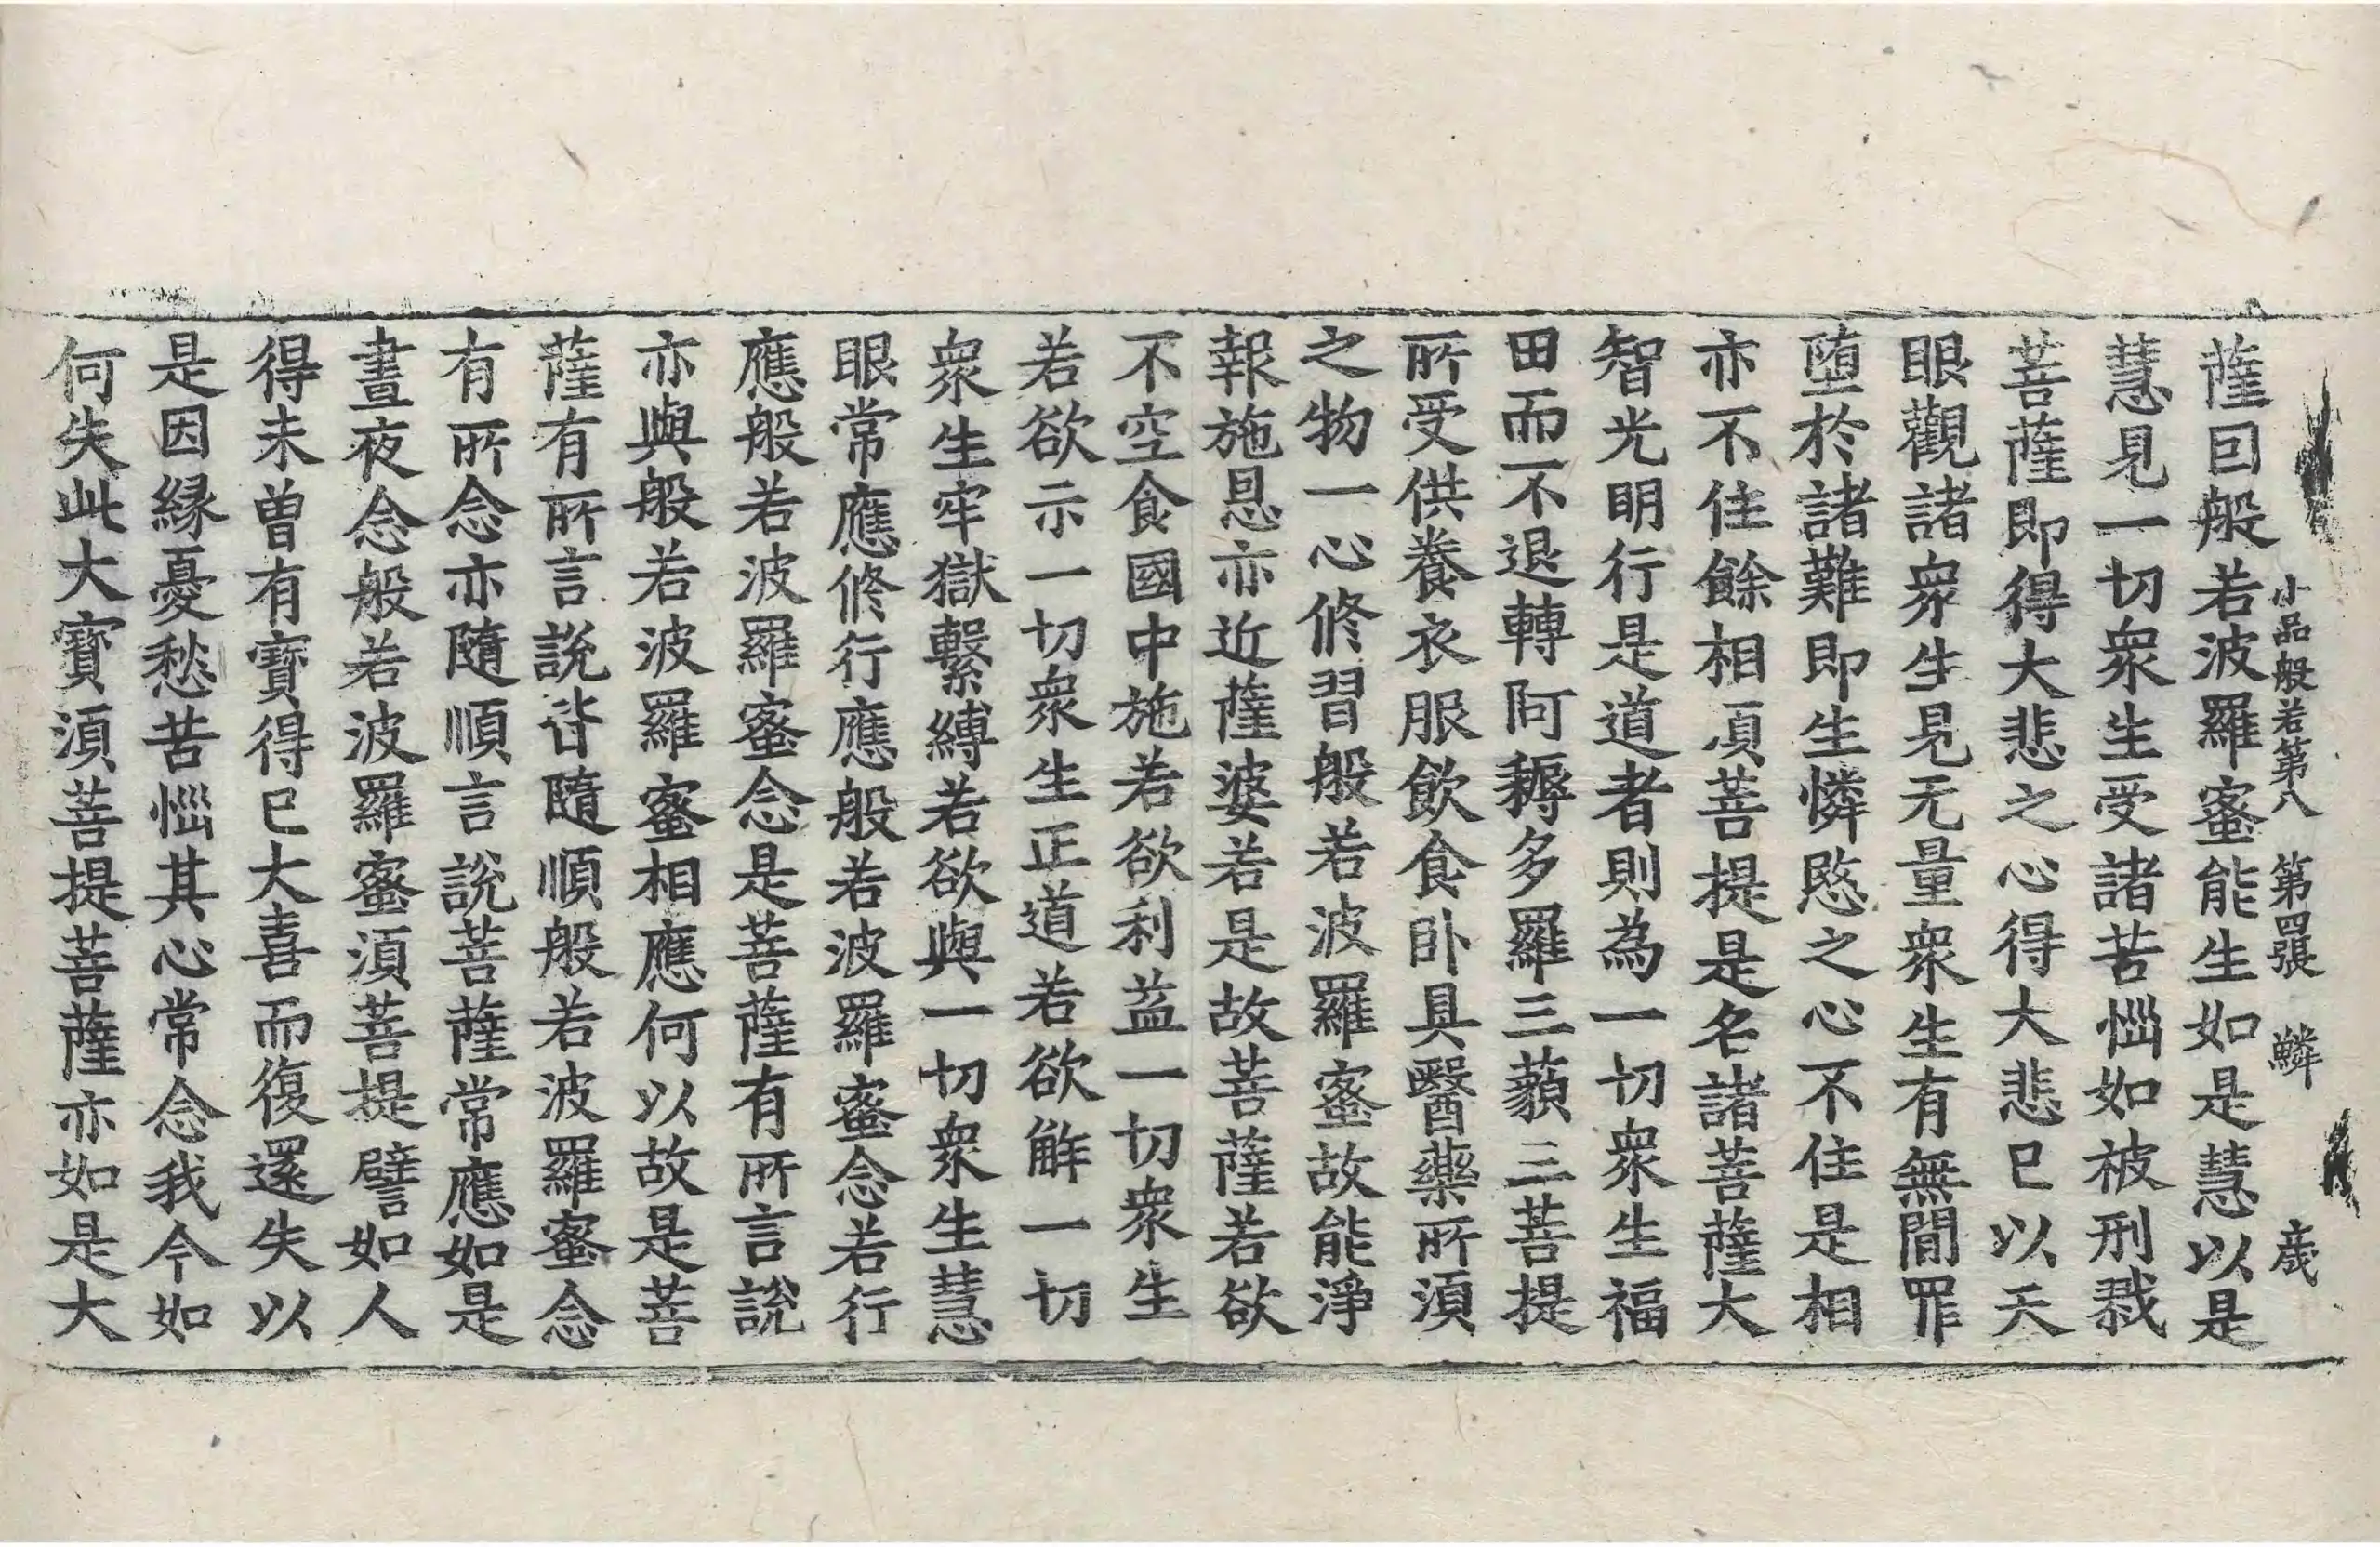 小品般若第八　第四張　鱗　歲
薩回般若波羅蜜能生如是慧以是
慧見一切衆生受諸苦惱如被刑戮
菩薩即得大悲之心得大悲已以天
眼觀諸衆生見无量衆生有無閒罪
墮於諸難即生憐愍之心不住是相
亦不住餘相湏菩提是名諸菩薩大
智光明行是道者則為一切衆生福
田而不退轉阿耨多羅三藐三菩提
所受供養衣服飲食卧具醫藥所湏
之物一心修習般若波羅蜜故能淨
報施恩亦近薩婆若是故菩薩若欲
不空食國中施若欲利益一切衆生
若欲示一切衆生正道若欲解一切
衆生牢獄繫縛若欲與一切衆生慧
眼常應修行應般若波羅蜜念若行
應般若波羅蜜念是菩薩有所言說
亦與般若波羅蜜相應何以故是菩
薩有所言說皆隨順般若波羅蜜念
有所念亦隨順言說菩薩常應如是
晝夜念般若波羅蜜湏菩提譬如人
得未曾有寶得已大喜而復還失以
是因緣憂愁苦惱其心常念我今如
何失此大寶湏菩提菩薩亦如是大